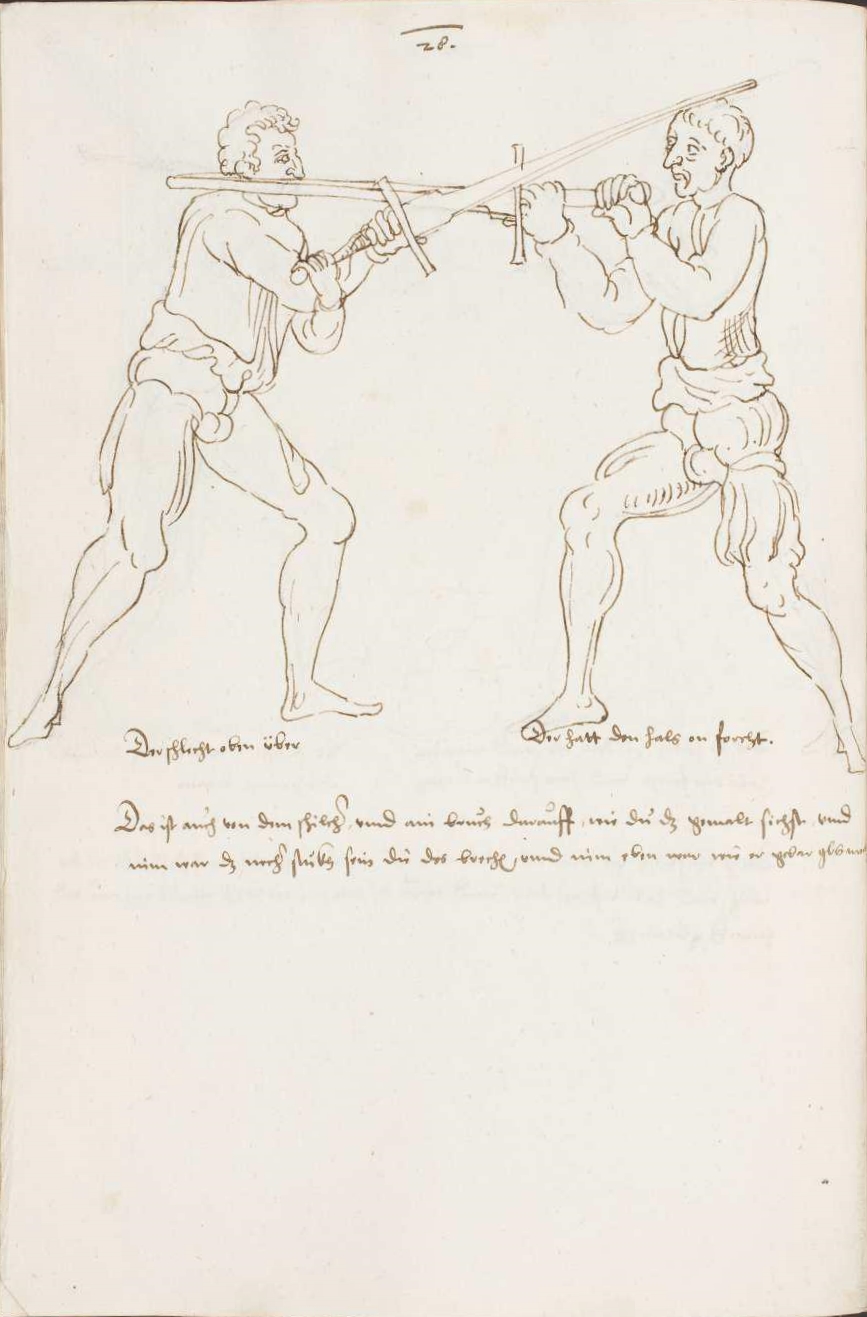 28.
Der schlecht oben über
Der hatt den hals on forcht.
Das ist auch von dem schilch vnnd ain bruch darauff, wie dü dz gemalt sichst vnnd
nim war dz nech stückh sein dü des brechen, vnnd nim eben war wie er gebar